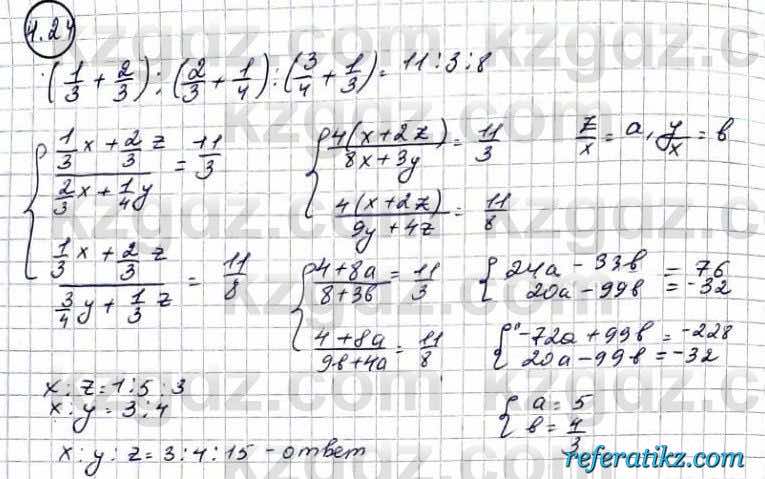 4.24
(1/3 + 2/3) : (2/3 + 1/4) : (3/4 + 1/3) = 11 : 3 : 8
{ (1/3 x + 2/3 z) / (2/3 x + 1/4 y) = 11/3
(1/3 x + 2/3 z) / (3/4 y + 1/3 z) = 11/8
{ 4(x + 2z) / (8x + 3y) = 11/3
4(x + 2z) / (9y + 4z) = 11/8
z/x = a, y/x = b
{ (4 + 8a) / (8 + 3b) = 11/3
(4 + 8a) / (9b + 4a) = 11/8
{ 24a - 33b = 76
20a - 99b = -32
{ -72a + 99b = -228
20a - 99b = -32
{ a = 5
b = 4/3
x : z = 1 : 5 : 3
x : y = 3 : 4
x : y : z = 3 : 4 : 15 - ответ
kzgdz.com
referatikz.com